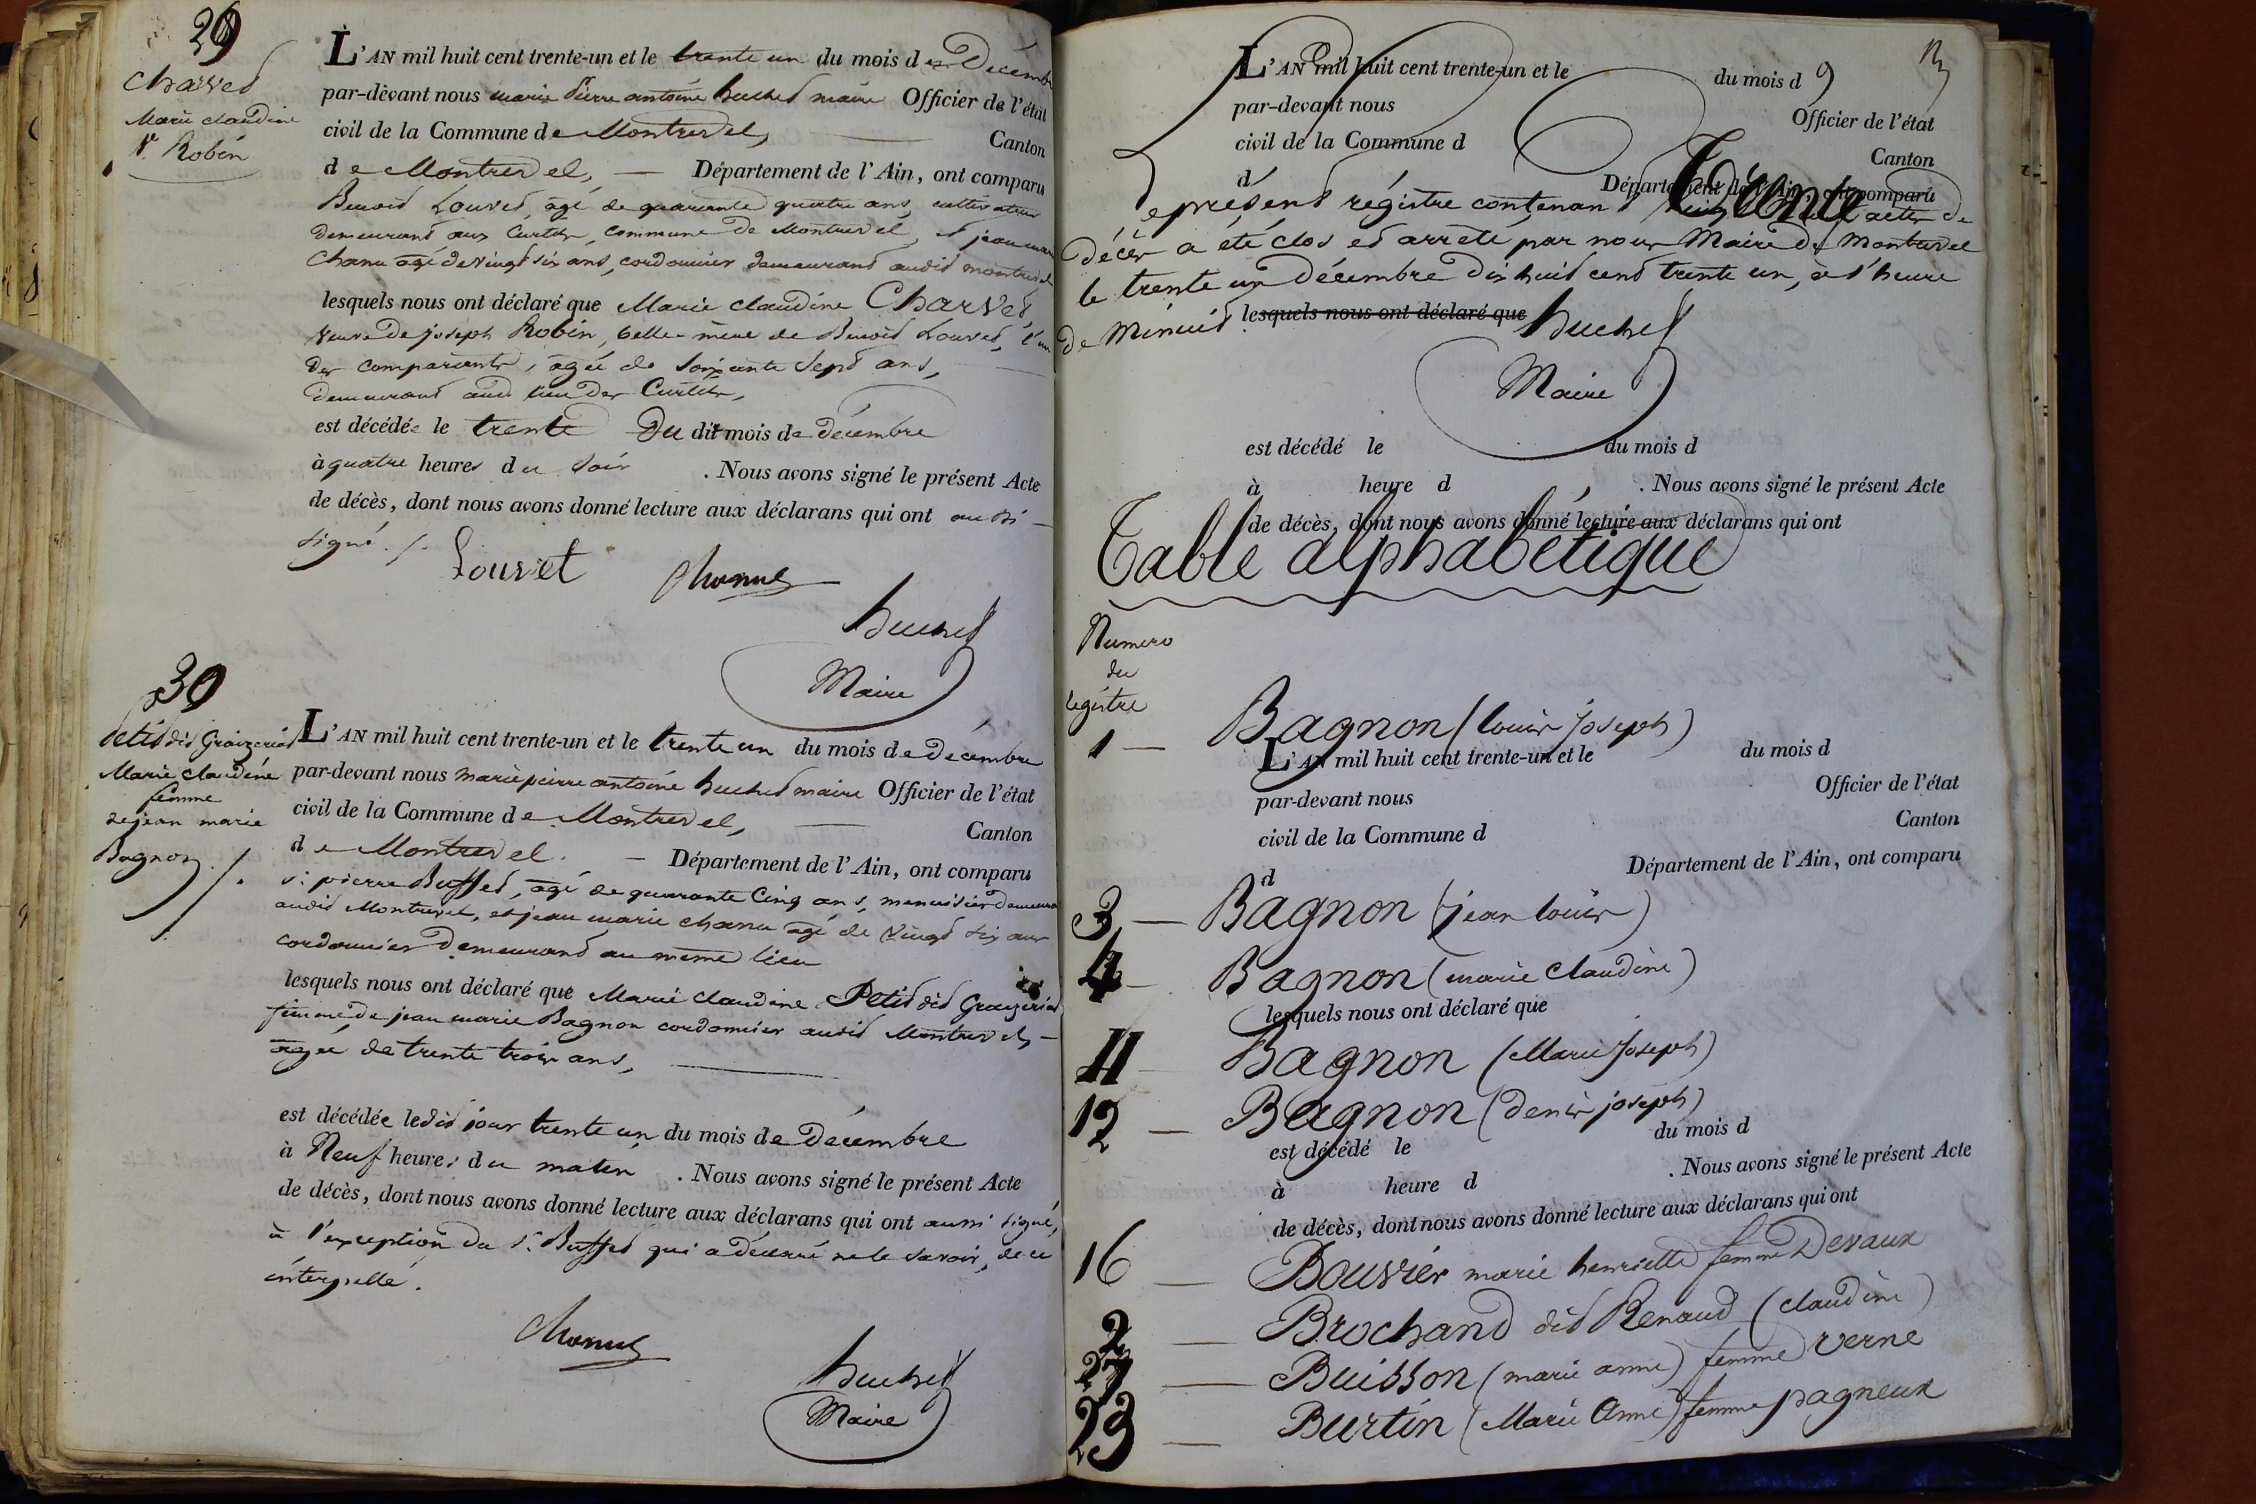 29
Charvet
Marie claudine
Ve. Robin
L'AN mil huit cent trente-un et le trente un du mois de Décembre
par-devant nous marie Pierre antoine huchet maire Officier de l'état
civil de la Commune de Montrevel, Canton
de Montrevel, — Département de l'Ain, ont comparu
Benoit Louvet, âgé de quarante quatre ans, cultivateur
demeurant aux Curtits, commune de Montrevel, et jean marie
Chanu âgé de vingt six ans, cordonnier demeurant audit montrevel
lesquels nous ont déclaré que Marie claudine Charvet
veuve de joseph Robin, belle-mère de Benoit Louvet, l'un
des comparants, âgée de soixante sept ans,
demeurant aud. lieu des Curtits,
est décédée le trente Du dit mois de décembre
à quatre heures du soir . Nous avons signé le présent Acte
de décès, dont nous avons donné lecture aux déclarans qui ont aussi
signé ./.
Louvet Chanu
huchet
Maire
30
Petit dit Graizeriat
Marie claudine
femme
de jean marie
Bagnon ./.
L'AN mil huit cent trente-un et le trente un du mois de décembre
par-devant nous marie pierre antoine huchet maire Officier de l'état
civil de la Commune de Montrevel, Canton
de Montrevel. — Département de l'Ain, ont comparu
sr. pierre Buffet, âgé de quarante Cinq ans, menuisier demeurant
audit Montrevel, et jean marie chanu âgé de vingt six ans
cordonnier demeurant au même lieu
lesquels nous ont déclaré que Marie claudine Petit dit Graizeriat
femme de jean marie Bagnon cordonnier audit Montrevel, —
âgée de trente trois ans,
est décédée ledit jour trente un du mois de Décembre
à Neuf heures du matin . Nous avons signé le présent Acte
de décès, dont nous avons donné lecture aux déclarans qui ont aussi signé,
à l'exception du sr. Buffet qui a déclaré ne le savoir, de ce
interpellé.
Chanu
huchet
Maire
L'AN mil huit cent trente-un et le du mois d
par-devant nous Officier de l'état
civil de la Commune d Canton
d Département de l'Ain, ont comparu
Le présent régistre contenant Trente actes de
décès a été clos et arrêté par nous Maire de Montrevel
le trente un décembre dix huit cent trente un, à l'heure
de Minuit. lesquels nous ont déclaré que huchet
Maire
est décédé le du mois d
à heure d . Nous avons signé le présent Acte
de décès, dont nous avons donné lecture aux déclarans qui ont
Table alphabétique
Numero
du
registre
1 — Bagnon (louis joseph)
L'AN mil huit cent trente-un et le du mois d
par-devant nous Officier de l'état
civil de la Commune d Canton
d Département de l'Ain, ont comparu
3 — Bagnon (jean louis)
4 — Bagnon (marie Claudine)
lesquels nous ont déclaré que
11 — Bagnon (Marie Joseph)
12 — Bagnon (denis joseph)
est décédé le du mois d
à heure d . Nous avons signé le présent Acte
de décès, dont nous avons donné lecture aux déclarans qui ont
16 — Bouvier marie henriette femme Devaux
2 — Brochand dit Renaud (claudine)
27 — Buisson (marie anne) femme verne
23 — Burtin (Marie Anne) femme pagneux